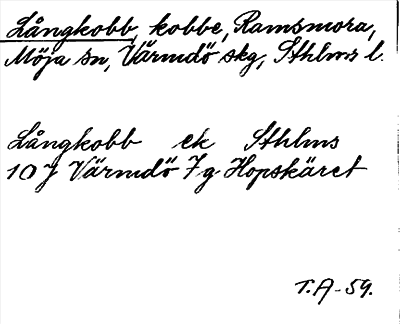 Långkobb, kobbe, Ramsmora,
Möja sn, Värmdö skg, Sthlms l.
Långkobb ek Sthlms
10J Värmdö 7g Hopskäret
T.A-59.